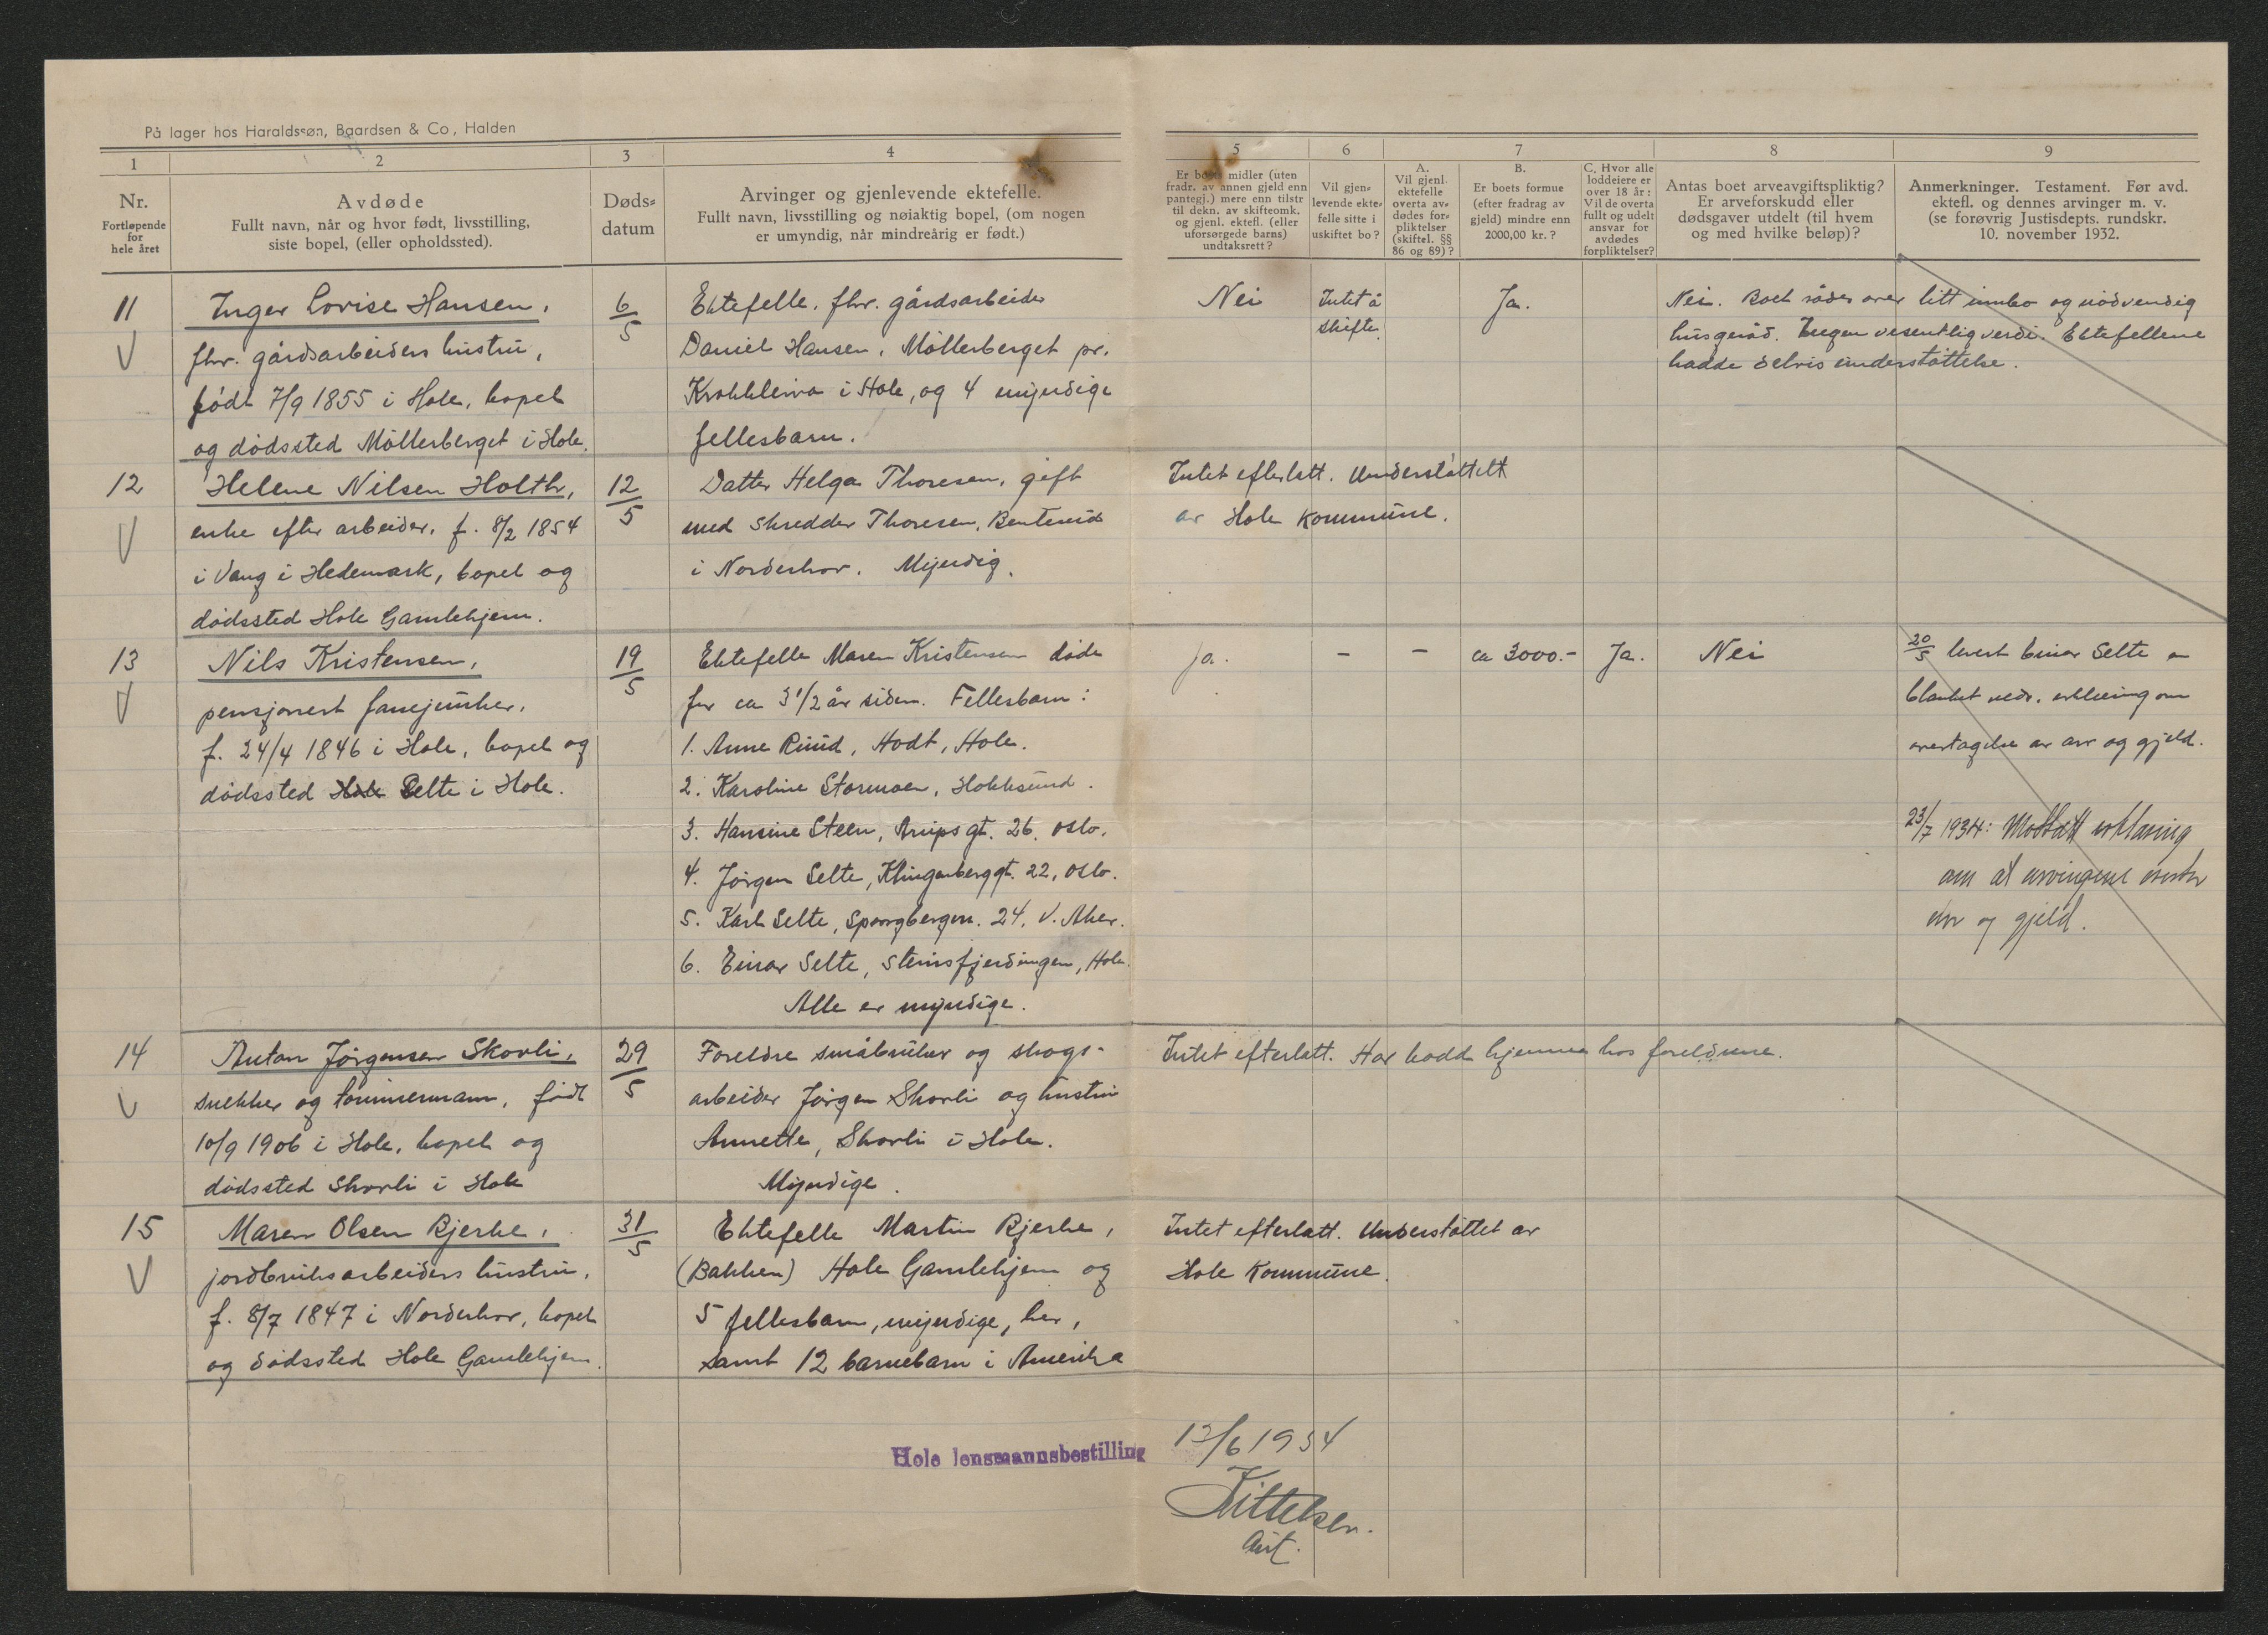 På lager hos Haraldssøn, Baardsen & Co, Halden
1 2 3 4 5 6 7 8 9
Nr.
Fortløpende
for
hele året
Avdøde
Fullt navn, når og hvor født, livsstilling,
siste bopel, (eller opholdssted).
Døds-
datum
Arvinger og gjenlevende ektefelle.
Fullt navn, livsstilling og nøiaktig bopel, (om nogen
er umyndig, når mindreårig er født.)
Er boets midler (uten
fradr. av annen gjeld enn
pantegj.) mere enn tilstr
til dekn. av skifteomk.
og gjenl. ektefl. (eller
uforsørgede barns)
undtaksrett?
Vil gjen-
levende ekte-
felle sitte i
uskiftet bo?
A.
Vil gjenl.
ektefelle
overta av-
dødes for-
pliktelser
(skiftel. §§
86 og 89)?
B.
Er boets formue
(efter fradrag av
gjeld) mindre enn
2000,00 kr.?
C. Hvor alle
loddeiere er
over 18 år:
Vil de overta
fullt og udelt
ansvar for
avdødes
forpliktelser?
Antas boet arveavgiftspliktig?
Er arveforskudd eller
dødsgaver utdelt (til hvem
og med hvilke beløp)?
Anmerkninger. Testament. Før avd.
ektefl. og dennes arvinger m. v.
(se forøvrig Justisdepts. rundskr.
10. november 1932.
11
Inger Lovise Hansen,
fhv. gårdsarbeiders hustru,
født 7/9 1855 i Hole, bopel
og dødssted Möllerberget i Hole.
6/5
Ektefelle, fhv. gårdsarbeider
Daniel Hansen, Möllerberget pr.
Krokkleiva i Hole, og 4 myndige
fellesbarn.
Nei
Intet å
skifte.
Ja.
Nei. Boet råder over litt innbo og nödvendig
husgeråd. Ingen vesentlig verdi. Ektefellene
hadde delvis understöttelse.
12
Helene Nilsen Holth,
enke efter arbeider, f. 8/2 1854
i Vang i Hedemark, bopel og
dödssted Hole Gamlehjem.
12/5
Datter Helga Thoresen, gift
med skredder Thoresen,
i Norderhov. Myndig.
Intet efterlatt. Understöttett
av Hole Kommune.
13
Nils Kristensen,
pensjonert fanejunker,
f. 24/4 1846 i Hole, bopel og
dödssted Selte i Hole.
19/5
Ektefelle Maren Kristensen døde
for ca 3 1/2 år siden. Fellesbarn:
1. Anne Ruud, Hodt, Hole.
2. Karoline Stormoen, Hokksund.
3. Hansine Steen, Arups gt. 26, Oslo.
4. Jörgen Selte, Klingenberggt. 22, Oslo.
5. Karl Selte, 24, V. Aker.
6. Einar Selte, Steinsfjerdingen, Hole.
Alle er myndige.
Ja.
–
–
ca 3000.-
Ja.
Nei
20/5 levert Einar Selte en
blankett vedr. erklæring om
overtagelse av arv og gjeld.
23/7 1934: Mottatt erklæring
om at arvingene overtar
arv og gjeld.
14
Anton Jörgensen Skovli,
snekker og tömmermann, född
10/9 1906 i Hole, bopel og
dödssted Skovli i Hole
29/5
Foreldre småbruker og skogs-
arbeider Jörgen Skovli og hustru
Annette, Skovli i Hole.
Myndige.
Intet efterlatt. Har bodd hjemme hos foreldrene.
15
Maren Olsen Bjerke,
jordbruksarbeiders hustru,
f. 8/7 1847 i Norderhov, bopel
og dödssted Hole Gamlehjem.
31/5
Ektefelle Martin Bjerke,
(Bakken) Hole Gamlehjem og
5 fellesbarn, myndige, her,
samt 12 barnebarn i Amerika
Intet efterlatt. Understöttet av
Hole Kommune.
Hole lensmannsbestilling
13/6 1934
Kittelsen.